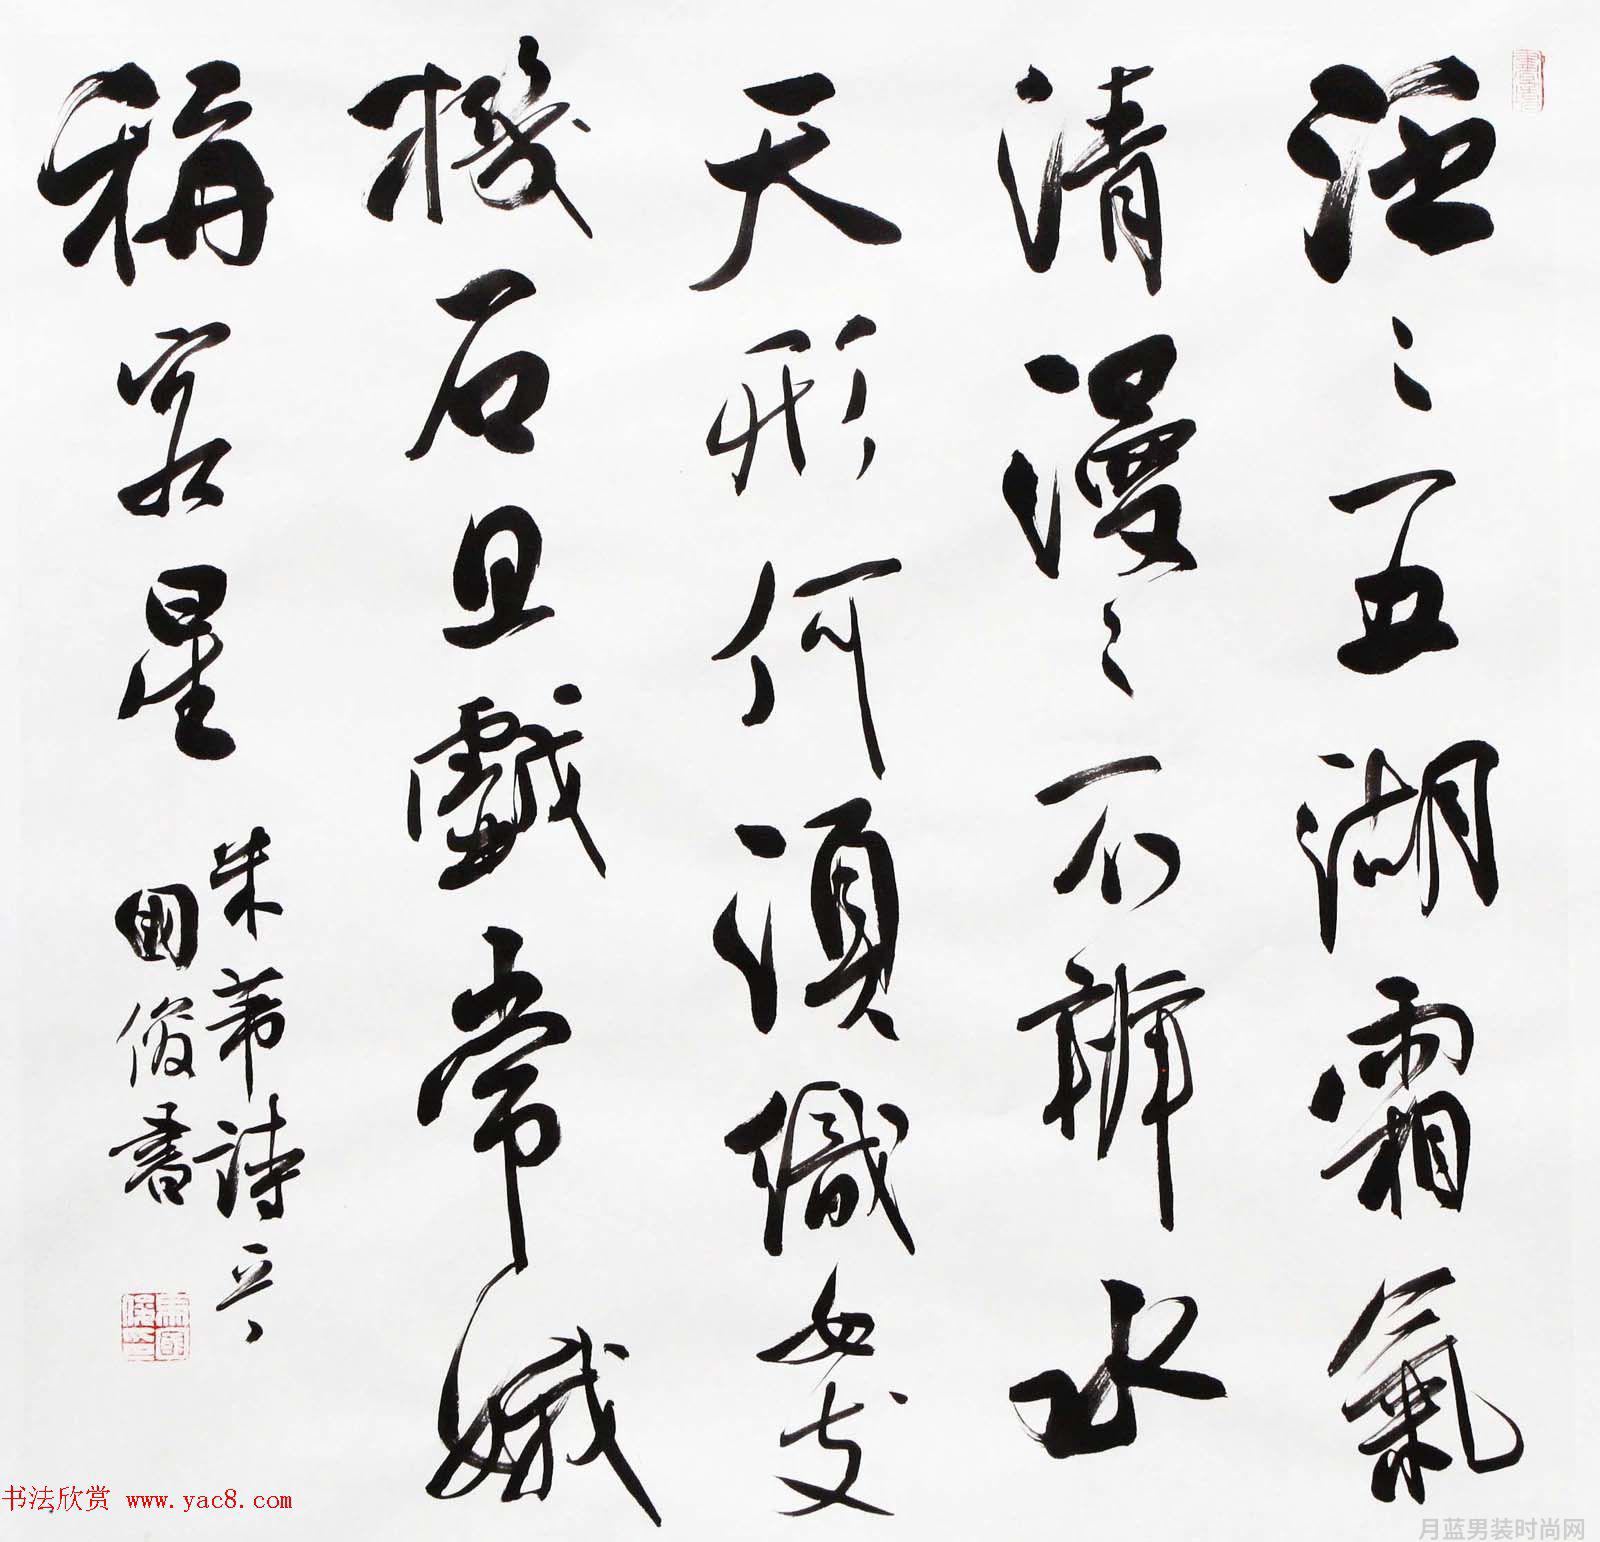 泛々五湖霜氣
清漫々不辨水
天形何須織女支
機石且戲常娥
稱客星
米芾詩
國俊書
书法欣赏 www.yac8.com
月蓝男装时尚网